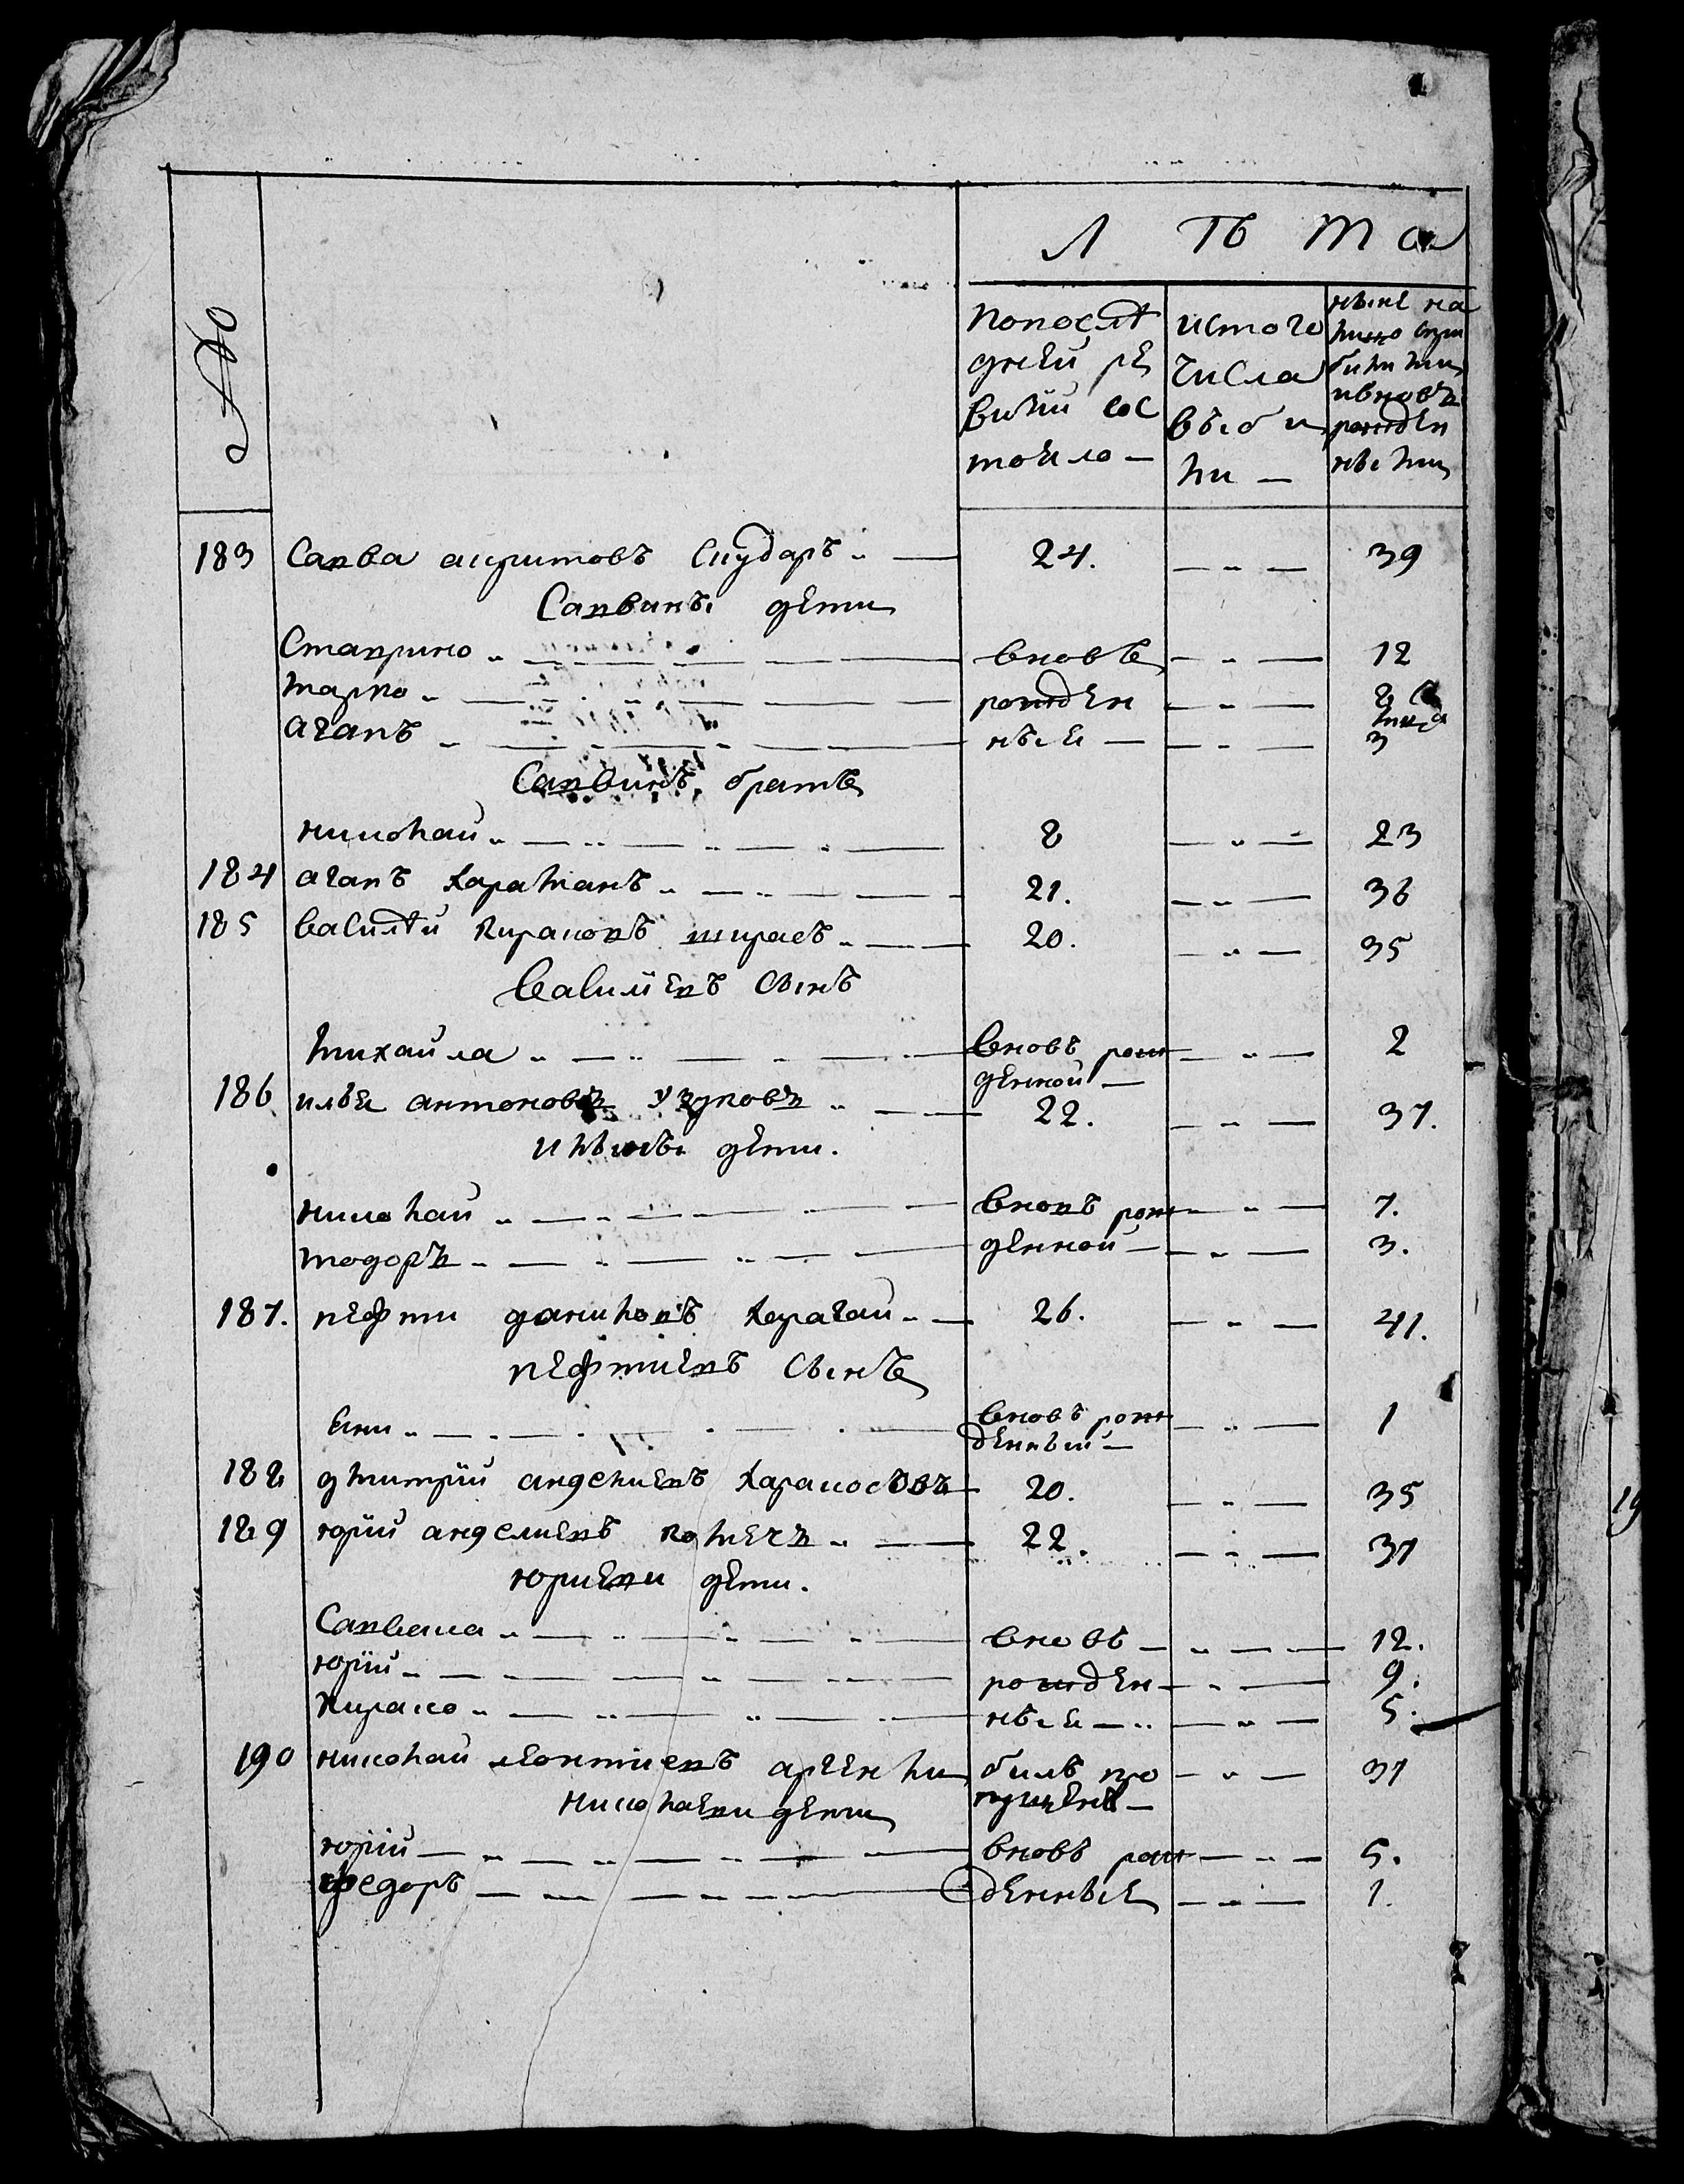 Л Ѣ Т А
№
попослѣ
дней ре
визїи сос
тояло —
изтого
числа
выбы
ли —
ныне на
лицо спри
былыми
ивновъ
рожден
ными
183 Савва Савинъ 24. — „ — 39
Саввины дети
Ставрино „ — вновь — „ — 12
Марко „ — рожден — „ — 8
агапъ „ — ные — — „ — 3
Саввинъ братъ
николай „ — 8 — „ — 23
184 агапъ Караманъ „ — 21. — „ — 36
185 василѣй кираковъ „ — 20. — „ — 35
василїевъ сынъ
михайла „ — вновь рож — „ — 2
денной —
186 илья антоновъ узуновъ „ — 22. — „ — 37.
ильины дети.
николай „ — вновъ рож — „ — 7.
тодоръ „ — денной — — „ — 3.
187. пефти даниловъ карагаи „ — 26. — „ — 41.
пефтиевъ сынъ
яни „ — вновъ рож — „ — 1
денный —
188 дмитрїй 20. — „ — 35
189 юрїй „ — 22. — „ — 37
юриеви дети.
Савелиа „ — вновь — „ — 12.
юрїй „ — рожден — „ — 9.
кирако „ — ные — „ — „ — 5.
190 николай леонтиевъ билъ про — „ — 37
пущенъ —
николаеви дети
юрїй — „ — вновъ рож — „ — 5.
федоръ — „ — денные — „ — 1.
19